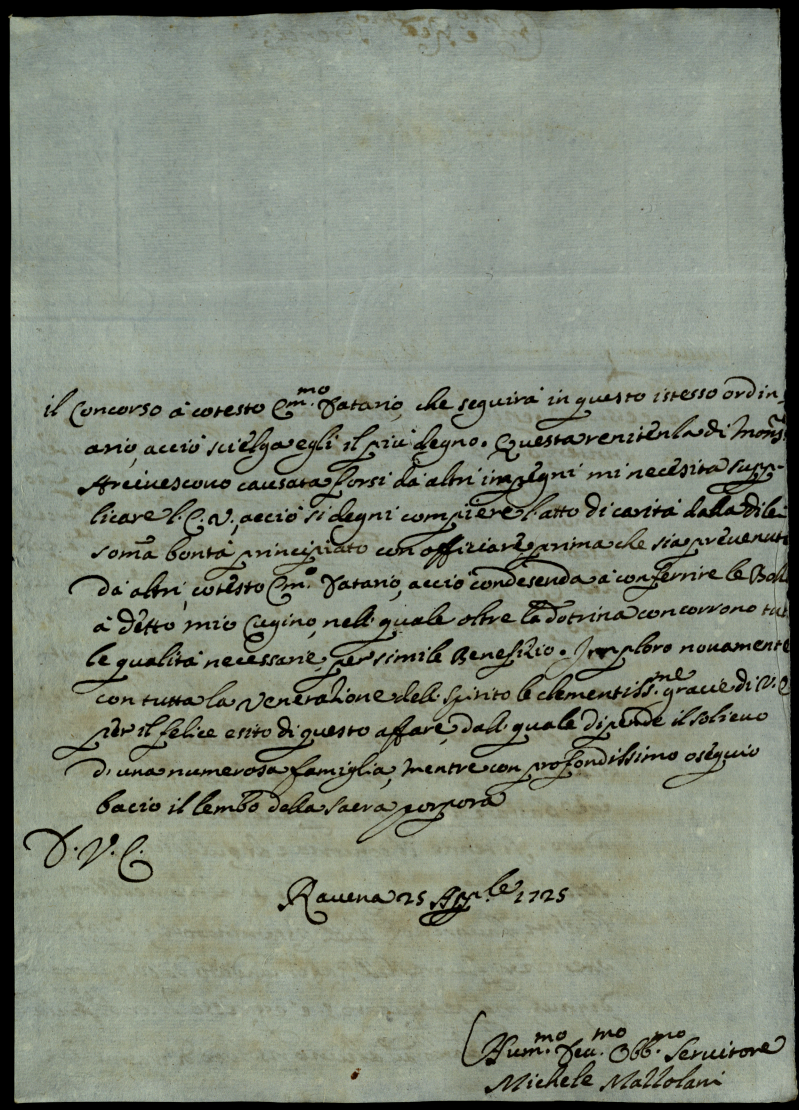 il Concorso à cotesto Em.mo Datario, che seguirà in questo istesso ordin-
ario, acciò scielga egli il più degno. Questa renitenza di Mons.
Arcivescovo causata forsi da altri impegni mi necesita supp-
licare l'E. V., acciò si degni compiere l'atto di carità dalla di lei
soma bontà principiato con officiare prima che sia prevenuto
dà altri, cotesto Em.o Datario, acciò condesenda à conferrire le Bolle
à detto mio Cugino, nell quale oltre la dotrina concorrono tut
le qualità necessarie, per simile Benefizio. Imploro novamente
con tutta la venerazione dell spirito le clementiss.me grazie di V. E
per il felice esito di questo affare, dall quale dipende il solievo
d'una numerosa famiglia, mentre con profondissimo osequio
bacio il lembo della sacra porpora
D. V. E.
Ravena 25 Apr.le 1725
Hum.mo Dev.mo Obb.mo Servitore
Michele Mazzolani